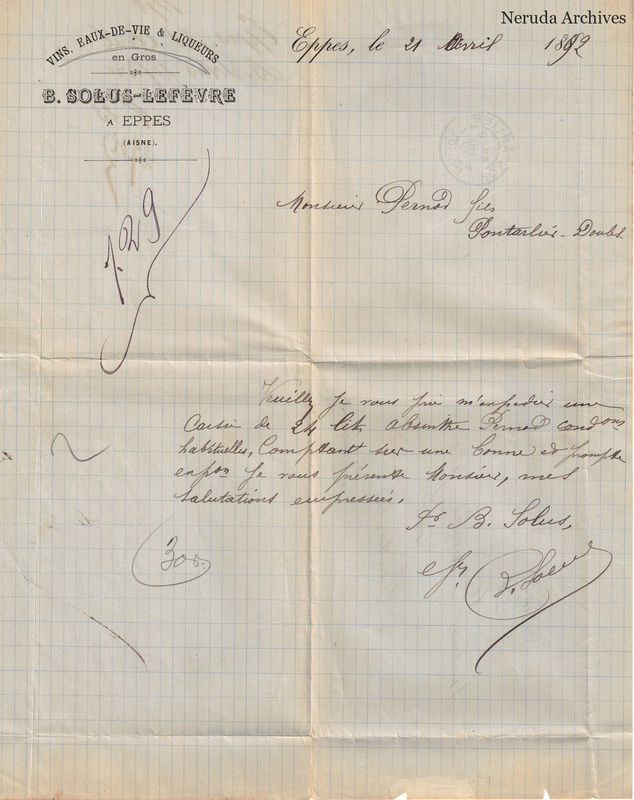 Neruda Archives
VINS, EAUX-DE-VIE & LIQUEURS
en Gros
B. SOLUS-LEFÈVRE
A EPPES
(AISNE).
Eppes, le 21 Avril 1892
Monsieur Pernod fils
Pontarlier - Doubs
1.29
Veuillez je vous prie m'expedier une
Caisse de 24 Lit absinthe Pernod condons
habituelles, Comptant sur une bonne et prompte
expon Je vous présente Monsieur, mes
salutations empressées.
Pr B. Solus,
300.